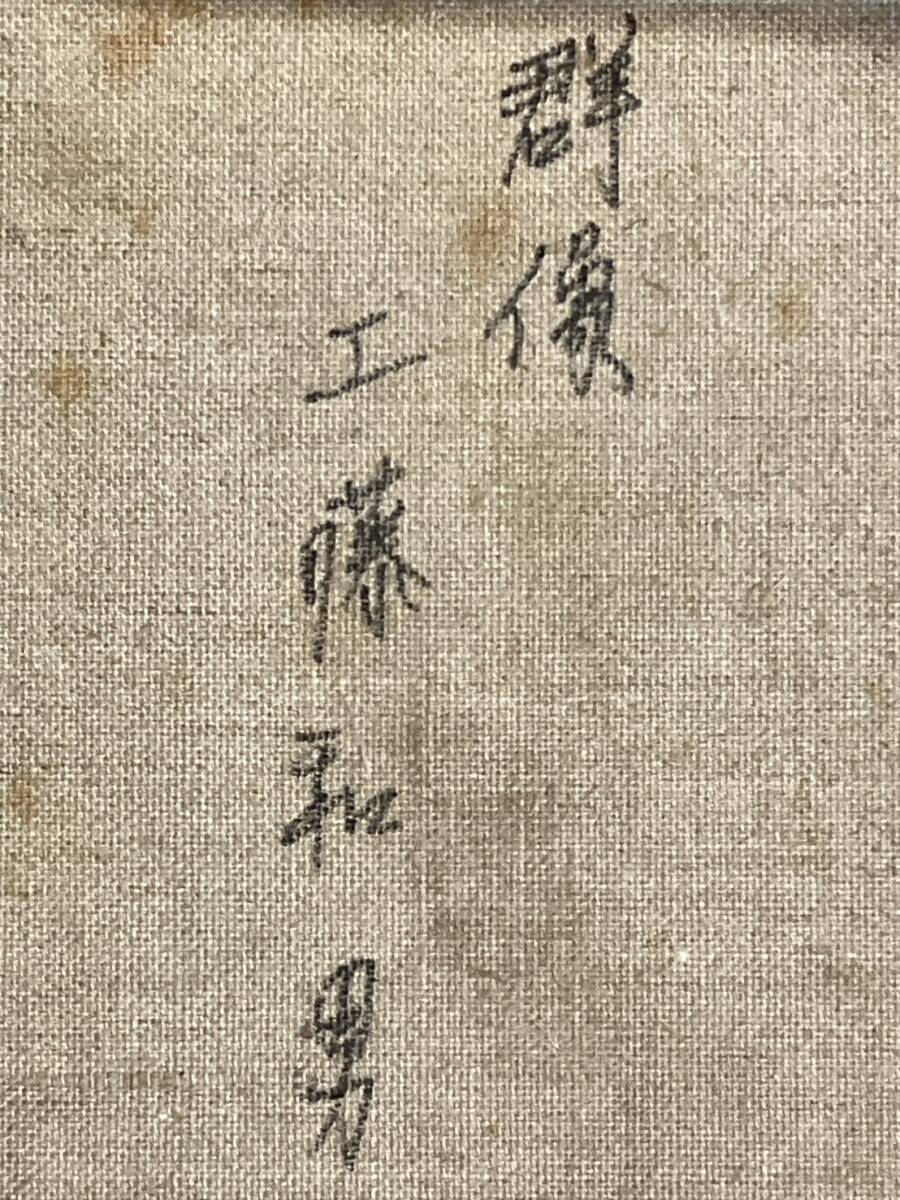 群像
工藤和男